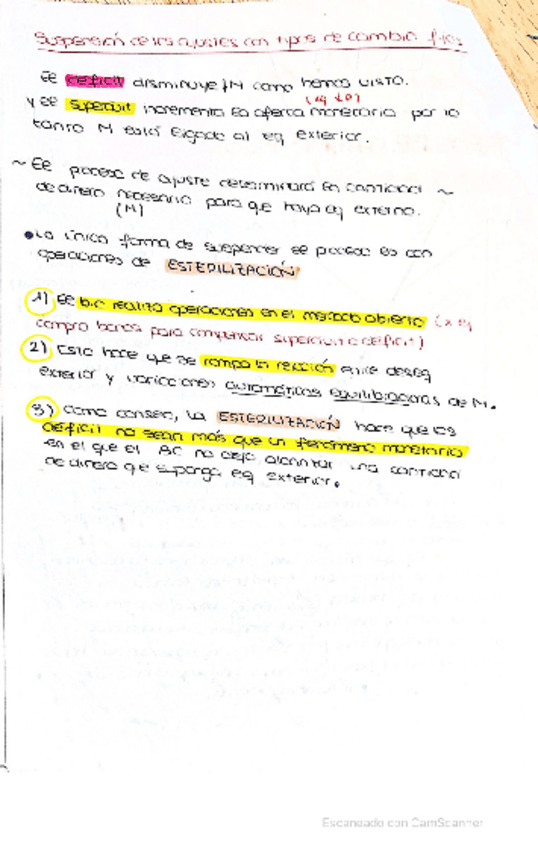 Suspensión de los ajustes con tipos de cambio fijos
El déficit disminuye ↓M como hemos visto.
y el superávit incrementa la oferta monetaria por lo
tanto M está ligado al eq exterior.
~ El proceso de ajuste determinará la cantidad ~
de dinero necesario para que haya eq externo.
(M)
• La única forma de suspender el proceso es con
operaciones de ESTERILIZACIÓN
1) El b.c realiza operaciones en el mercado abierto (x ej
compra bonos para compensar superávit o déficit)
2) Esto hace que se rompa la relación entre deseq
exterior y variaciones automáticas equilibradoras de M.
3) Como consec, la ESTERILIZACIÓN hace que los
déficit no sean más que un fenómeno monetario
en el que el BC no deja alcanzar una cantidad
de dinero que suponga eq exterior.
Escaneado con CamScanner